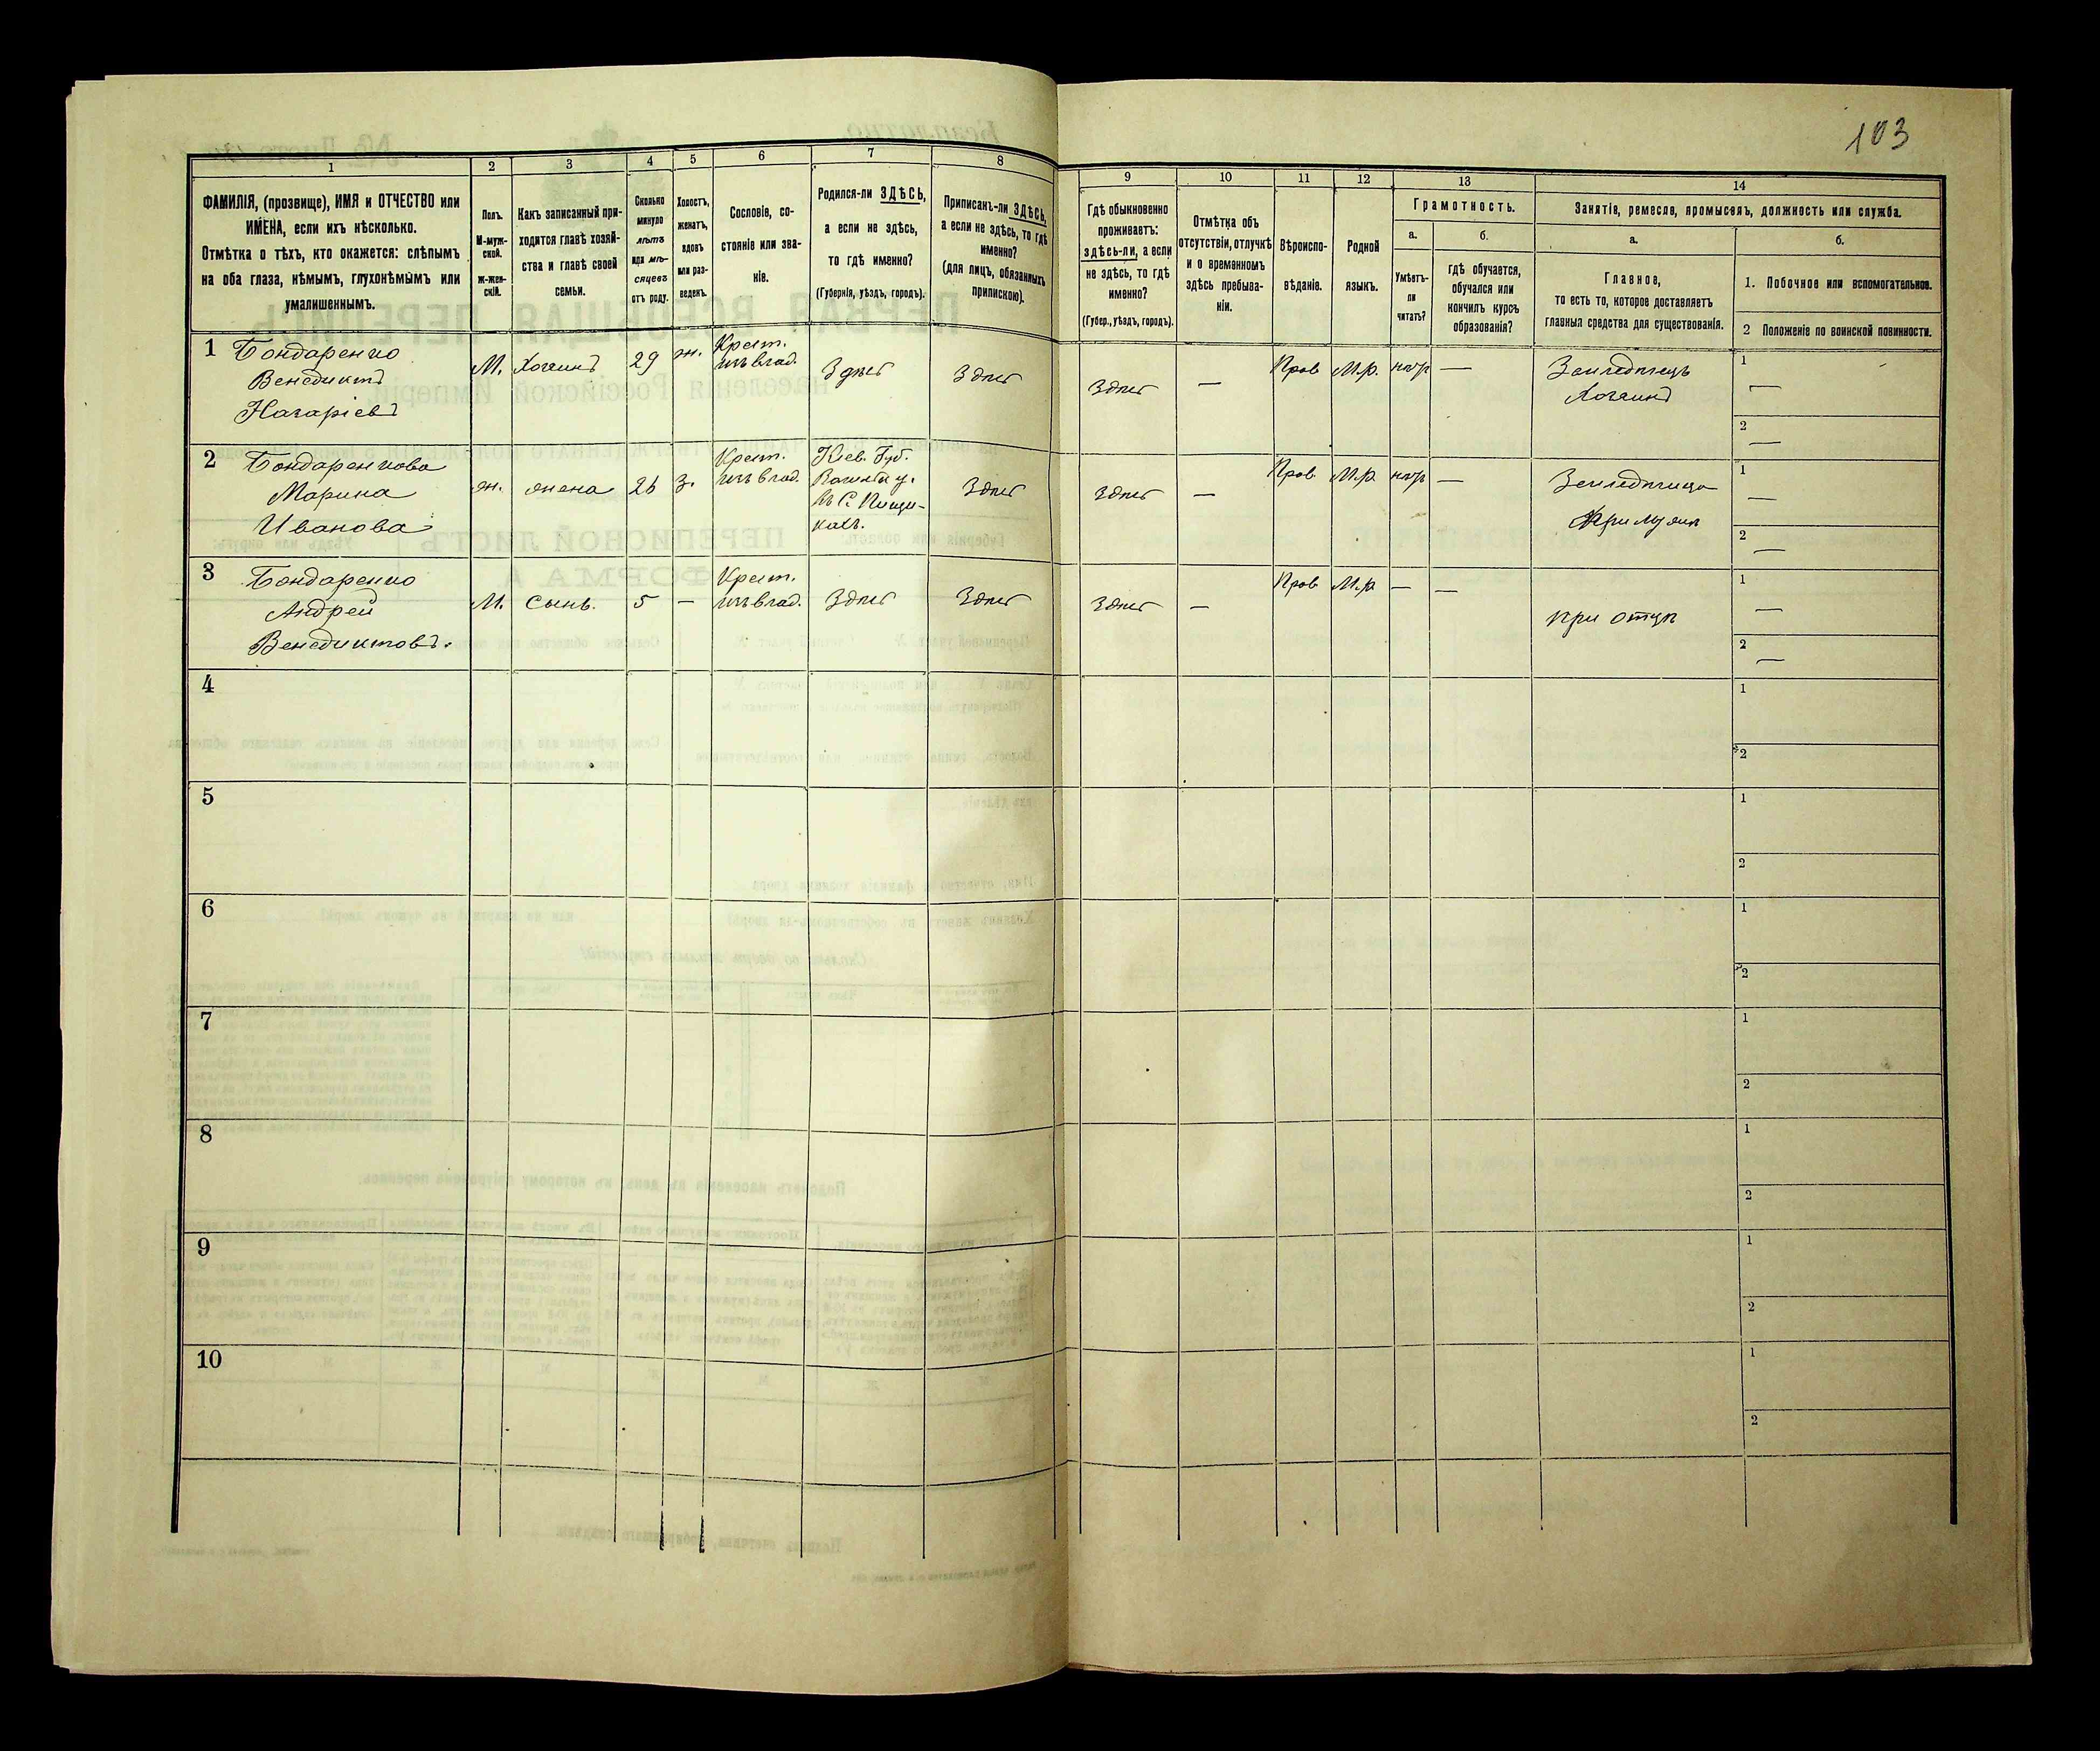 103
1
2
3
4
5
6
7
8
9
10
11
12
13
14
ФАМИЛІЯ, (прозвище), ИМЯ и ОТЧЕСТВО или
ИМЕНА, если ихъ нѣсколько.
Отмѣтка о тѣхъ, кто окажется: слѣпымъ
на оба глаза, нѣмымъ, глухонѣмымъ или
умалишеннымъ.
Полъ.
М-муж-
ской.
ж-жен-
скій.
Какъ записанный при-
ходится главѣ хозяй-
ства и главѣ своей
семьи.
Сколько
минуло
лѣтъ
или мѣ-
сяцевъ
отъ роду.
Холостъ,
женатъ,
вдовъ
или раз-
веденъ.
Сословіе, со-
стояніе или зва-
ніе.
Родился-ли ЗДѢСЬ,
а если не здѣсь,
то гдѣ именно?
(Губернія, уѣздъ, городъ).
Приписанъ-ли ЗДѢСЬ,
а если не здѣсь, то гдѣ
именно?
(для лицъ, обязанныхъ
припискою).
Гдѣ обыкновенно
проживаетъ:
здѣсь-ли, а если
не здѣсь, то гдѣ
именно?
(Губер., уѣздъ, городъ).
Отмѣтка объ
отсутствіи, отлучкѣ
и о временномъ
здѣсь пребыва-
ніи.
Вѣроиспо-
вѣданіе.
Родной
языкъ.
Грамотность.
а.
Умѣетъ-
ли
читать?
б.
гдѣ обучается,
обучался или
кончилъ курсъ
образованія?
Занятіе, ремесло, промыселъ, должность или служба.
а.
Главное,
то есть то, которое доставляетъ
главныя средства для существованія.
б.
1. Побочное или вспомогательное.
2 Положеніе по воинской повинности.
1 Бондаренко
Венедиктъ
Назаріевъ
М. Хозяинъ 29 ж. Крест.
изъ влад. Здѣсь Здѣсь Здѣсь — Прав М.р. нѣтъ — Земледѣлецъ
Хозяинъ
1 —
2 —
2 Бондаренкова
Марина
Иванова
ж. жена 26 з. Крест.
изъ влад. Кіев. Губ.
въ С. Пищи-
кахъ. Здѣсь Здѣсь — Прав М.р. нѣтъ — Земледѣлица
При мужѣ
1 —
2 —
3 Бондаренко
Андрей
Венедиктовъ.
М. Сынъ. 5 — Крест.
изъ влад. Здѣсь Здѣсь Здѣсь — Прав М.р — — при отцѣ
1 —
2 —
4
1
2
5
1
2
6
1
2
7
1
2
8
1
2
9
1
2
10
1
2